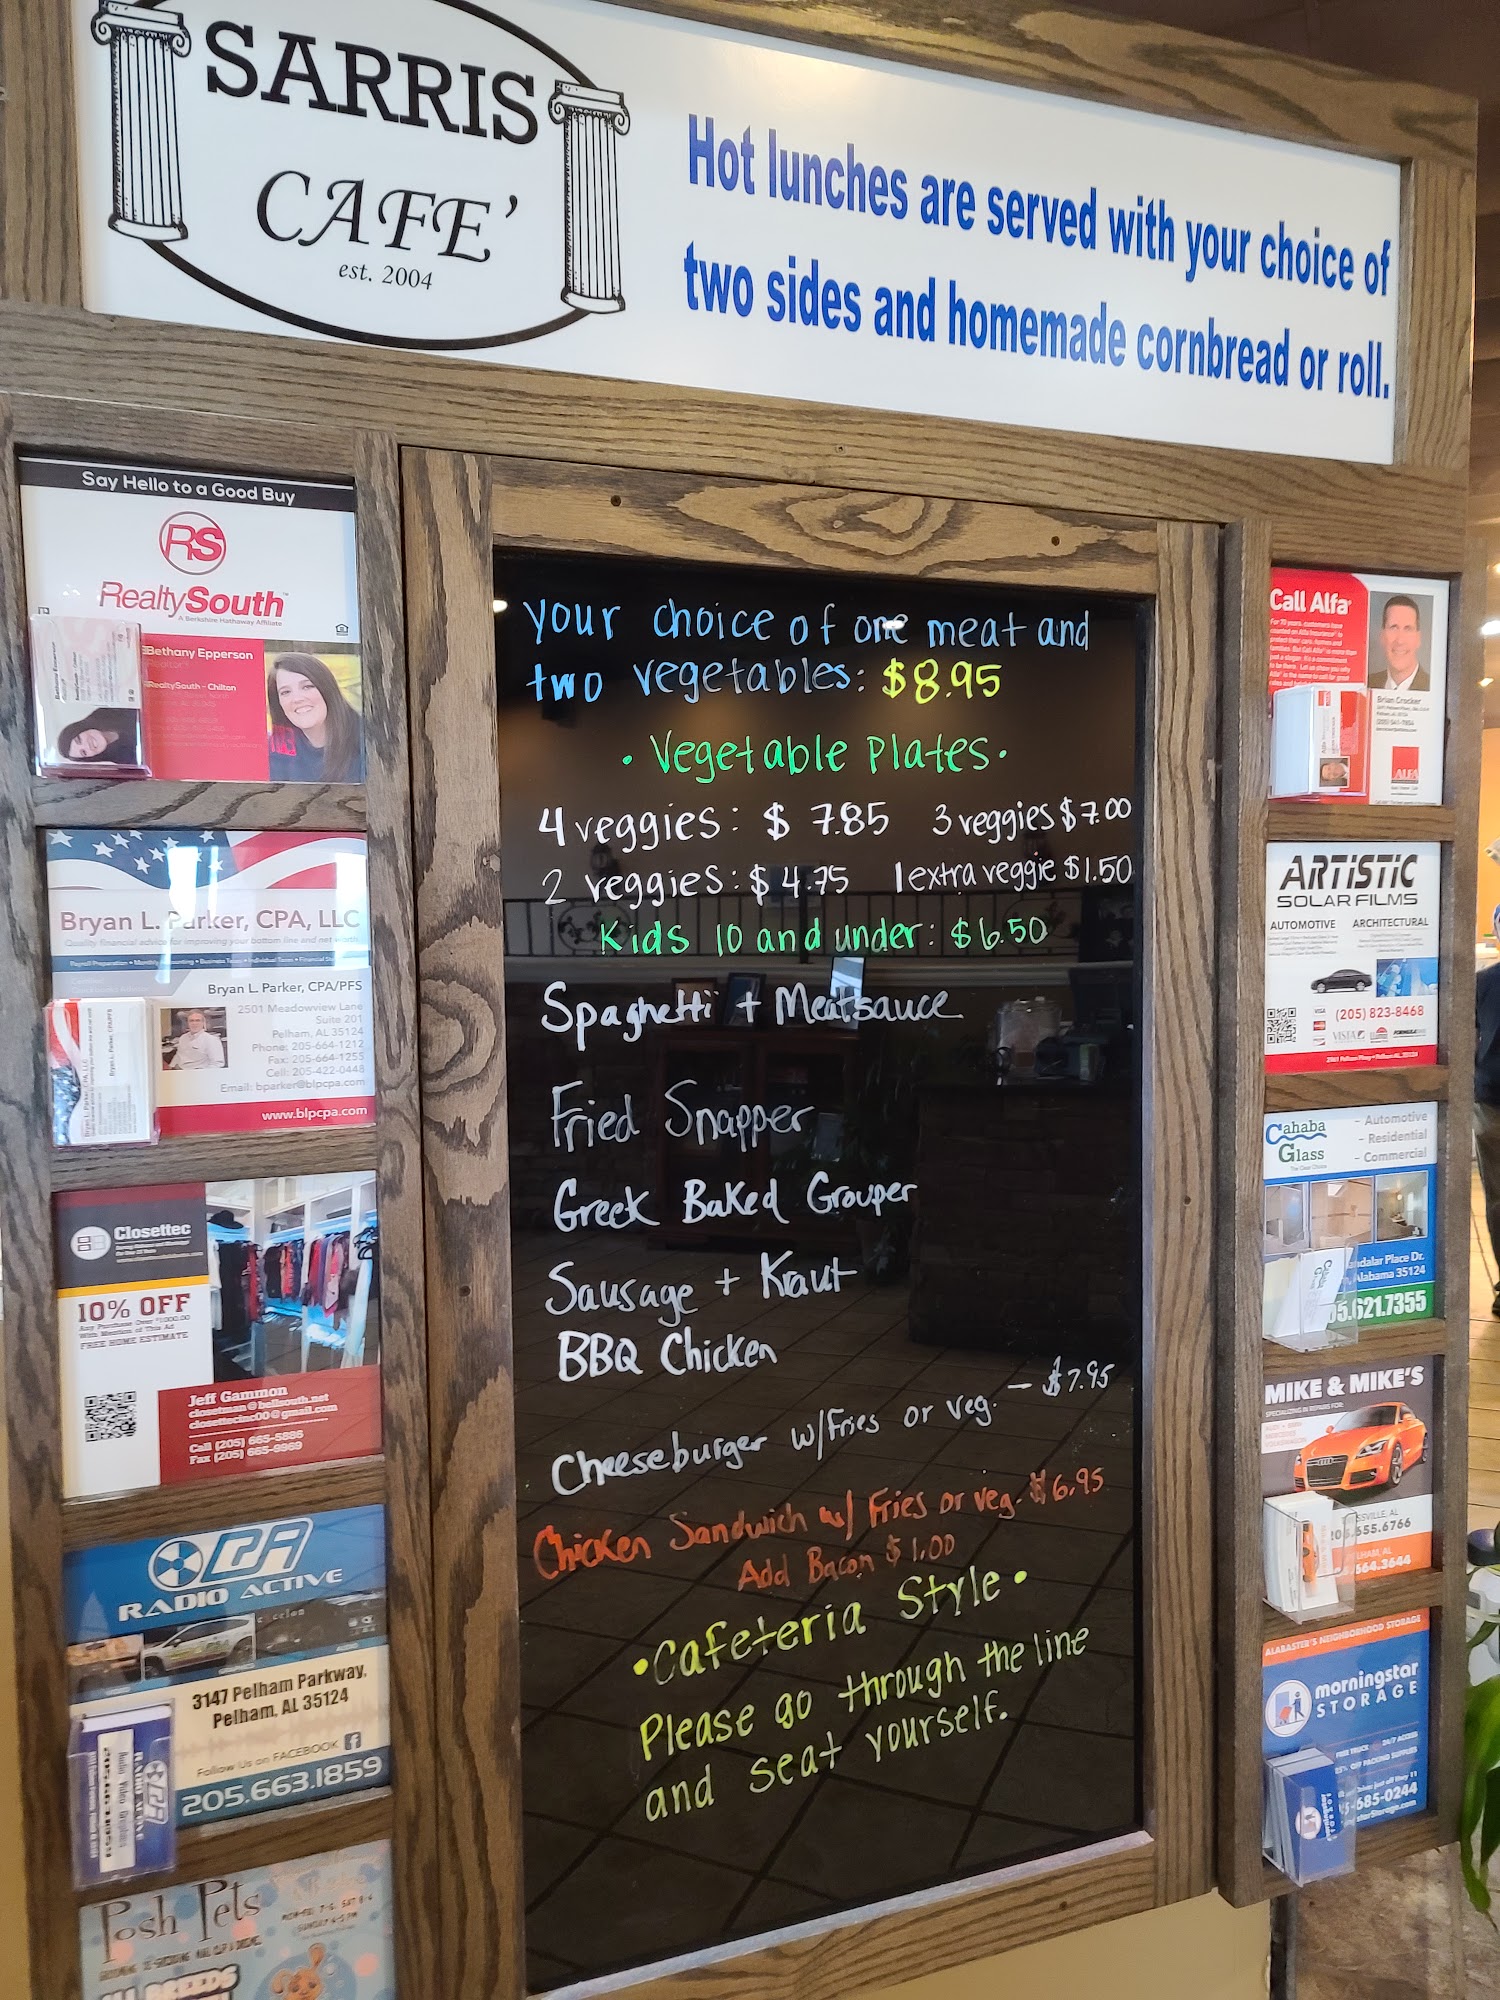 SARRIS
CAFE'
est. 2004
Hot lunches are served with your choice of
two sides and homemade cornbread or roll.
your choice of one meat and
two vegetables: $8.95
• Vegetable Plates •
4 veggies: $ 7.85 3 veggies $7.00
2 veggies: $4.75 1 extra veggie $1.50
Kids 10 and under: $6.50
Spaghetti + Meatsauce
Fried Snapper
Greek Baked Grouper
Sausage + Kraut
BBQ Chicken
Cheeseburger w/Fries or veg. – $7.95
Chicken Sandwich w/ Fries or veg. $6.95
Add Bacon $1.00
• Cafeteria Style •
Please go through the line
and seat yourself.
Say Hello to a Good Buy
RS
RealtySouth
A Berkshire Hathaway Affiliate
Bethany Epperson
RealtySouth - Chilton
Bryan L. Parker, CPA, LLC
Quality financial advice for improving your bottom line and net worth
Bryan L. Parker, CPA/PFS
2501 Meadowview Lane
Suite 201
Pelham, AL 35124
Phone: 205-664-1212
Fax: 205-664-1255
Cell: 205-422-0448
Email: bparker@blpcpa.com
www.blpcpa.com
Closettec
10% OFF
Any Purchase Over $1000.00
With Mention of This Ad
FREE HOME ESTIMATE
Jeff Gammon
closetman@bellsouth.net
closettecinc00@gmail.com
Call (205) 665-5885
Fax (205) 665-9969
RADIO ACTIVE
3147 Pelham Parkway,
Pelham, AL 35124
Follow Us on FACEBOOK
205.663.1859
Posh Pets
ALL BREEDS
Call Alfa
Brian Crocker
ALFA
ARTISTIC
SOLAR FILMS
AUTOMOTIVE ARCHITECTURAL
(205) 823-8468
Cahaba
Glass
– Automotive
– Residential
– Commercial
Place Dr.
Alabama 35124
621.7355
MIKE & MIKE'S
SPECIALIZING IN REPAIRS FOR:
655.6766
564.3644
ALABASTER'S NEIGHBORHOOD STORAGE
morningstar
STORAGE
FREE TRUCK 24/7 ACCESS
25% OFF PACKING SUPPLIES
-685-0244